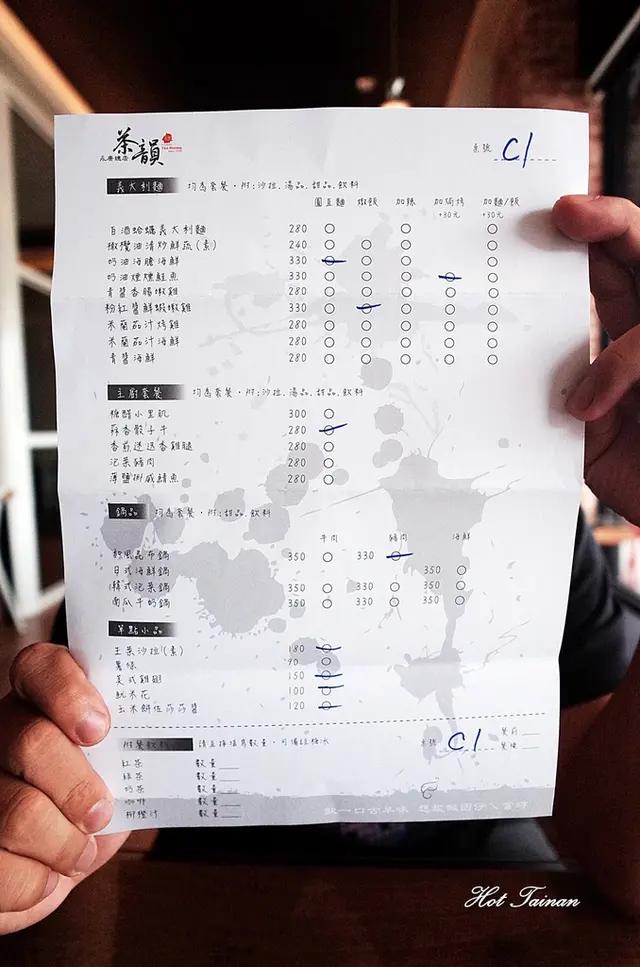 茶韻
永康總店
桌號 C1
義大利麵 均為套餐·附:沙拉、湯品、甜品、飲料
圓直麵 燉飯 加辣 加焗烤 +30元 加麵/飯 +30元
白酒蛤蠣義大利麵 280
橄欖油清炒鮮蔬(素) 240
奶油海膽海鮮 330
奶油煙燻鮭魚 330
青醬香腸嫩雞 280
粉紅醬鮮蝦嫩雞 330
米蘭茄汁烤雞 280
米蘭茄汁海鮮 280
青醬海鮮 280
主廚套餐 均為套餐·附:沙拉、湯品、甜品、飲料
糖醋小里肌 300
蒜香骰子牛 280
香煎迷迭香雞腿 280
泡菜豬肉 280
薄鹽挪威鯖魚 280
鍋品 均為套餐·附:甜品、飲料
牛肉 豬肉 海鮮
和風昆布鍋 350 330
日式海鮮鍋 350
韓式泡菜鍋 350 330 350
南瓜牛奶鍋 350 330 350
單點小品
主菜沙拉(素) 180
薯條 90
美式雞翅 150
魷米花 100
玉米餅佐莎莎醬 120
附餐飲料 請直接填寫數量·可備註糖冰
桌號 C1 餐前
餐後
紅茶 數量
綠茶 數量
奶茶 數量
咖啡 數量
柳橙汁 數量
Hot Tainan